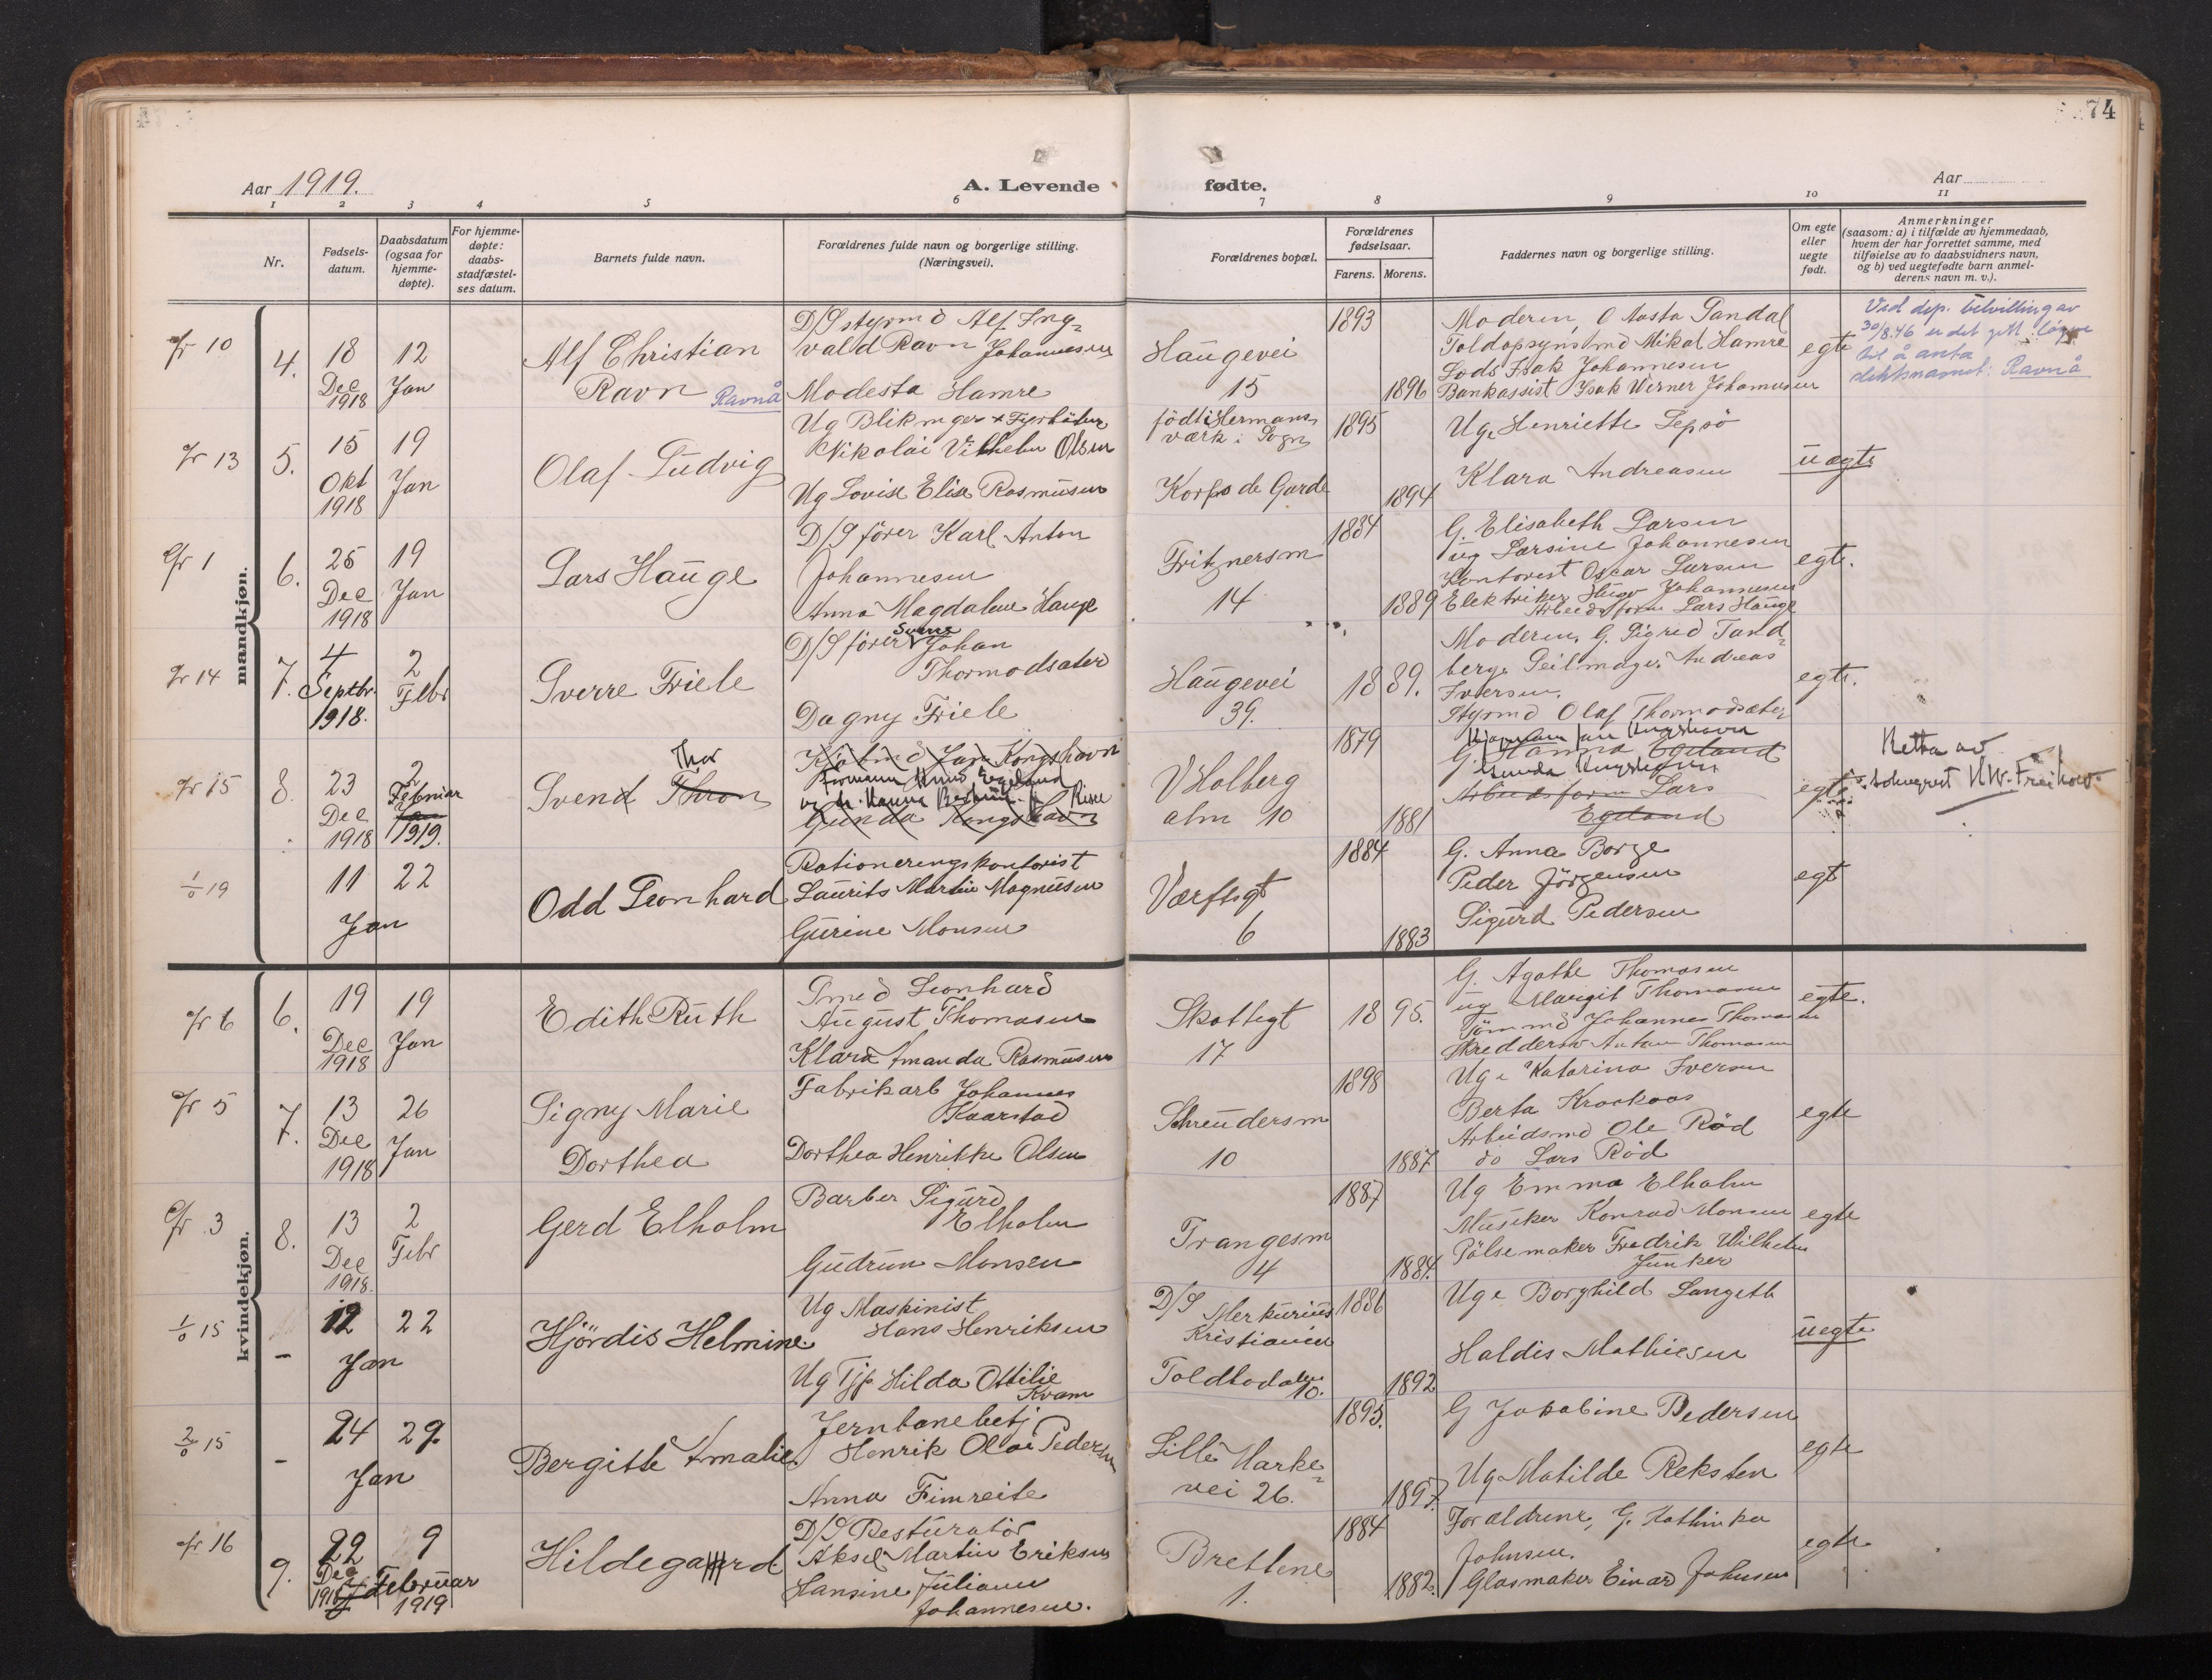 74
Aar 1919.
A. Levende fødte.
Aar
1 2 3 4 5 6 7 8 9 10 11
Nr.
Fødsels-datum.
Daabsdatum (ogsaa for hjemme-døpte).
For hjemme-døpte: daabs-stadfæstel-ses datum.
Barnets fulde navn.
Forældrenes fulde navn og borgerlige stilling. (Næringsvei).
Forældrenes bopæl.
Forældrenes fødselsaar.
Farens. Morens.
Faddernes navn og borgerlige stilling.
Om egte eller uegte født.
Anmerkninger
(saasom: a) i tilfælde av hjemmedaab,
hvem der har forrettet samme, med
tilføielse av to daabsvidners navn,
og b) ved uegtefødte barn anmel-
derens navn m. v.).
mandkjøn.
10
4.
18 Dec 1918
12 Jan
Alf Christian
Ravn Ravnå
D/S styrmd Alf Ing-
vald Ravn Johannesen
Modesta Hamre
Haugevei
15
1893
1896
Moderen, Aasta Sandal
Toldopsynsmd Mikal Hamre
Lods Isak Johannesen
Bankassist Isak Werner Johannesen
egte
Ved dep. bevilling av
30/8.46 er det gitt
til å anta
slektsnavnet: Ravnå
13
5.
15 Okt 1918
19 Jan
Olaf Ludvig
Ug Blikmager + Fyrböter
Nikolai Vilhelm Olsen
Ug Lovise Elise Rasmusen
født i Hermans
værk i Sogn
Korps de Garde
1895
1894
Uge Henriette Lepsö
Klara Andreasen
uegte
1
6.
25 Dec 1918
19 Jan
Lars Hauge
D/S fører Karl Anton
Johannesen
Anna Magdalene Hauge
Fritznersm
14
1884
1889
G. Elisabeth Larsen
ug Larsine Johannesen
Kontorist Oscar Larsen
Elektriker Hugo Johannesen
Arbeidsform Lars Hauge
egte.
14
7.
4 Septbr. 1918.
2 Febr
Sverre Friele
D/S fører Sverre Johan
Thormodsæter
Dagny Friele
Haugevei
39.
1889.
Moderen, G. Sigrid Tand-
berg, Seilmager Andreas
Iversen.
Styrmd Olaf Thormodsæter
egte.
15
8.
23 Dec 1918
2 Februar Jan 1919.
Svend Thron Thor
Kjøbmd Jan Kongshavn
Formann Knud Egeland
Hanna
Gunda Kongshavn
V Holberg
alm 10
1879
1881
G. Hanna Egeland
Gunda Kongshavn
Arbeidsform Lars
Egeland
egte
Rettet av
sokneprest
1/0 19
11 22
Jan
Odd Leonhard
Rationeringskontorist
Laurits Martin Magnusen
Gurine Monsen
Værftsgt
6
1884
1883
G. Anna Borge
Peder Jörgensen
Sigurd Pedersen
egt
kvindekjøn.
6
6.
19 Dec 1918
19 Jan
Edith Ruth
Smed Leonhard
August Thomasen
Klara Amanda Rasmusen
Skottegt
17
1895.
G. Agathe Thomasen
ug Margit Thomasen
Tömmd Johannes Thomasen
Skreddersv Anton Thomasen
egte.
5
7.
13 Dec 1918
26 Jan
Signy Marie
Dorthea
Fabrikarb Johannes
Kaarstad
Dorthea Henrikke Olsen
Schreudersm
10
1898
1887
Uge Katarina Iversen
Berta Krookaas
Arbeidsmd Ole Rød
do Lars Rød
egte
3
8.
13 Dec 1918.
2 Febr
Gerd Elholm
Barber Sigurd
Elholm
Gudrun Monsen
Trangesm
4
1887
1884.
Ug Emma Elholm
Musiker Konrad Monsen
Pölsemaker Fredrik Wilhelm
Junker
egte
1/0 15
-
12 22
Jan
Hjördis Helmine
Ug Maskinist
Hans Henriksen
Ug Tjp Hilda Ottilie
Kvam
D/S Merkurius
Kristiania
Toldbodalm
10.
1886
1892
Uge Borghild Langeth
Haldis Mathiesen
uegte
2/0 15
-
24 29.
Jan
Bergitte Amalie
Jernbanebetj
Henrik Olai Pedersen
Anna Fimreite
Lille Marke-
vei 26.
1895.
1897.
G Jakobine Pedersen
Ug Matilde Reksten
egte
16
9.
22 Dec 1918
9 Februar 1919
Hildegaard
D/S Resturatör
Aksel Martin Eriksen
Hansine Juliane
Johannesen.
Brettene
1.
1884
1882.
Forældrene, G. Kathinka
Johnsen.
Glasmaker Einar Johnsen
egte